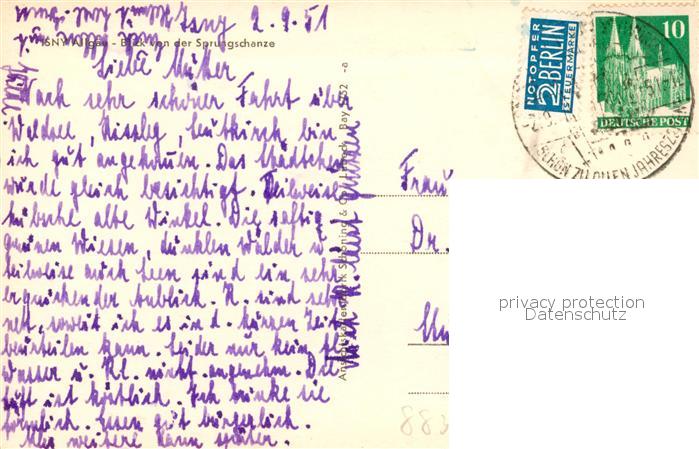 Isny 2.9.51
ISNY Allgäu - Blick von der Sprungschanze
Liebe Mutter
Nach sehr schöner Fahrt über
Waldsee, Kisslegg, Leutkirch bin
ich gut angekommen. Das Städtchen
wurde gleich besichtigt. Teilweise
hübsche alte Winkel. Die saftig
grünen Wiesen, dunklen Wälder u
teilweise auch Seen sind ein sehr
erquickender Anblick. R. sind sehr
nett, soweit ich es in d. kurzen Zeit
beurteilen kann. Leider nur kein fl.
Wasser u. Kl. nicht angenehm. Die
Luft ist köstlich. Ich trinke sie
förmlich. Essen gut bürgerlich.
Alles weitere dann später.
Ansichtskartenfabrik Schöning & Co
Frau
Dr.
NOTOPFER
2 BERLIN
STEUERMARKE
10
DEUTSCHE POST
SCHÖN ZU ALLEN JAHRESZEITEN
privacy protection
Datenschutz
883